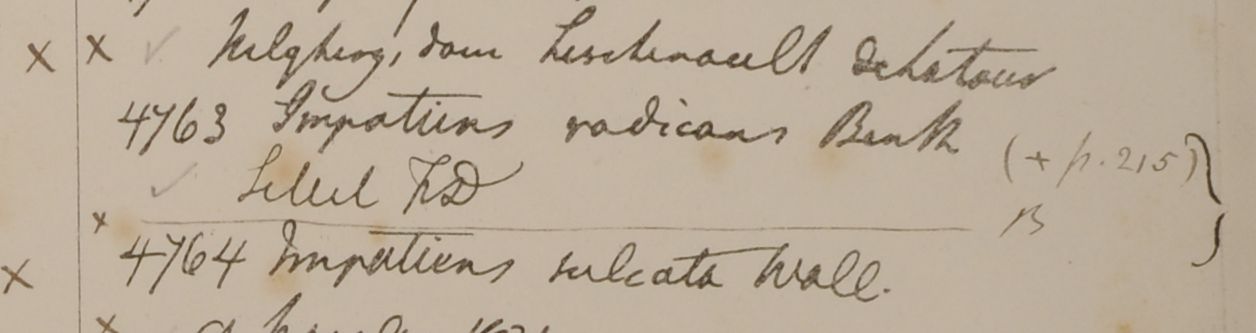 x x ✓ Nelghery, dom Leschenault dehatour
4763 Impatiens radicans Benth (+ p. 215)
✓ Sillet FD
B
x 4764 Impatiens sulcata Wall.
x